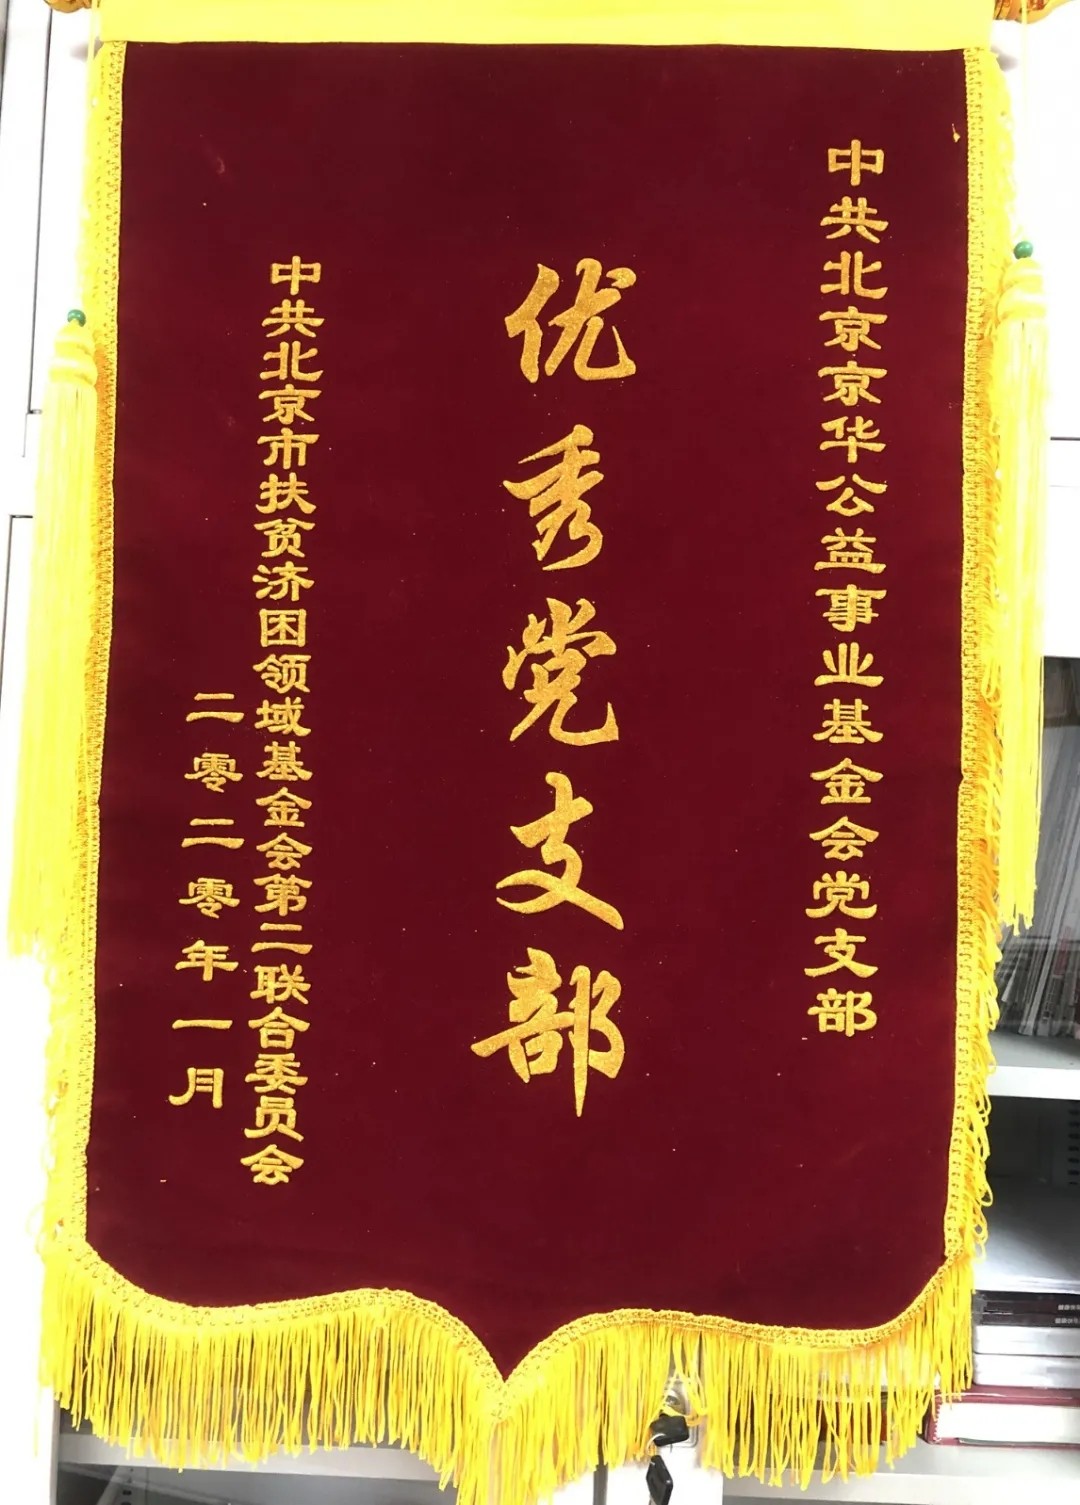 中共北京京华公益事业基金会党支部
优秀党支部
中共北京市扶贫济困领域基金会第二联合委员会
二零二零年一月